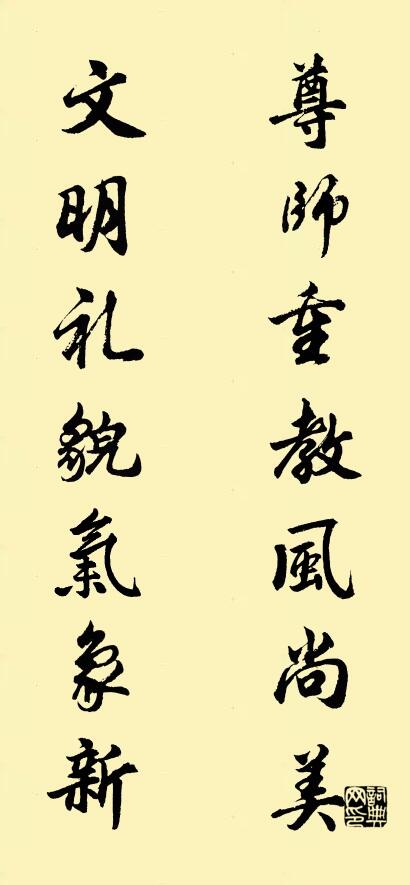 尊師重教風尚美
文明礼貌氣象新
詞典網印